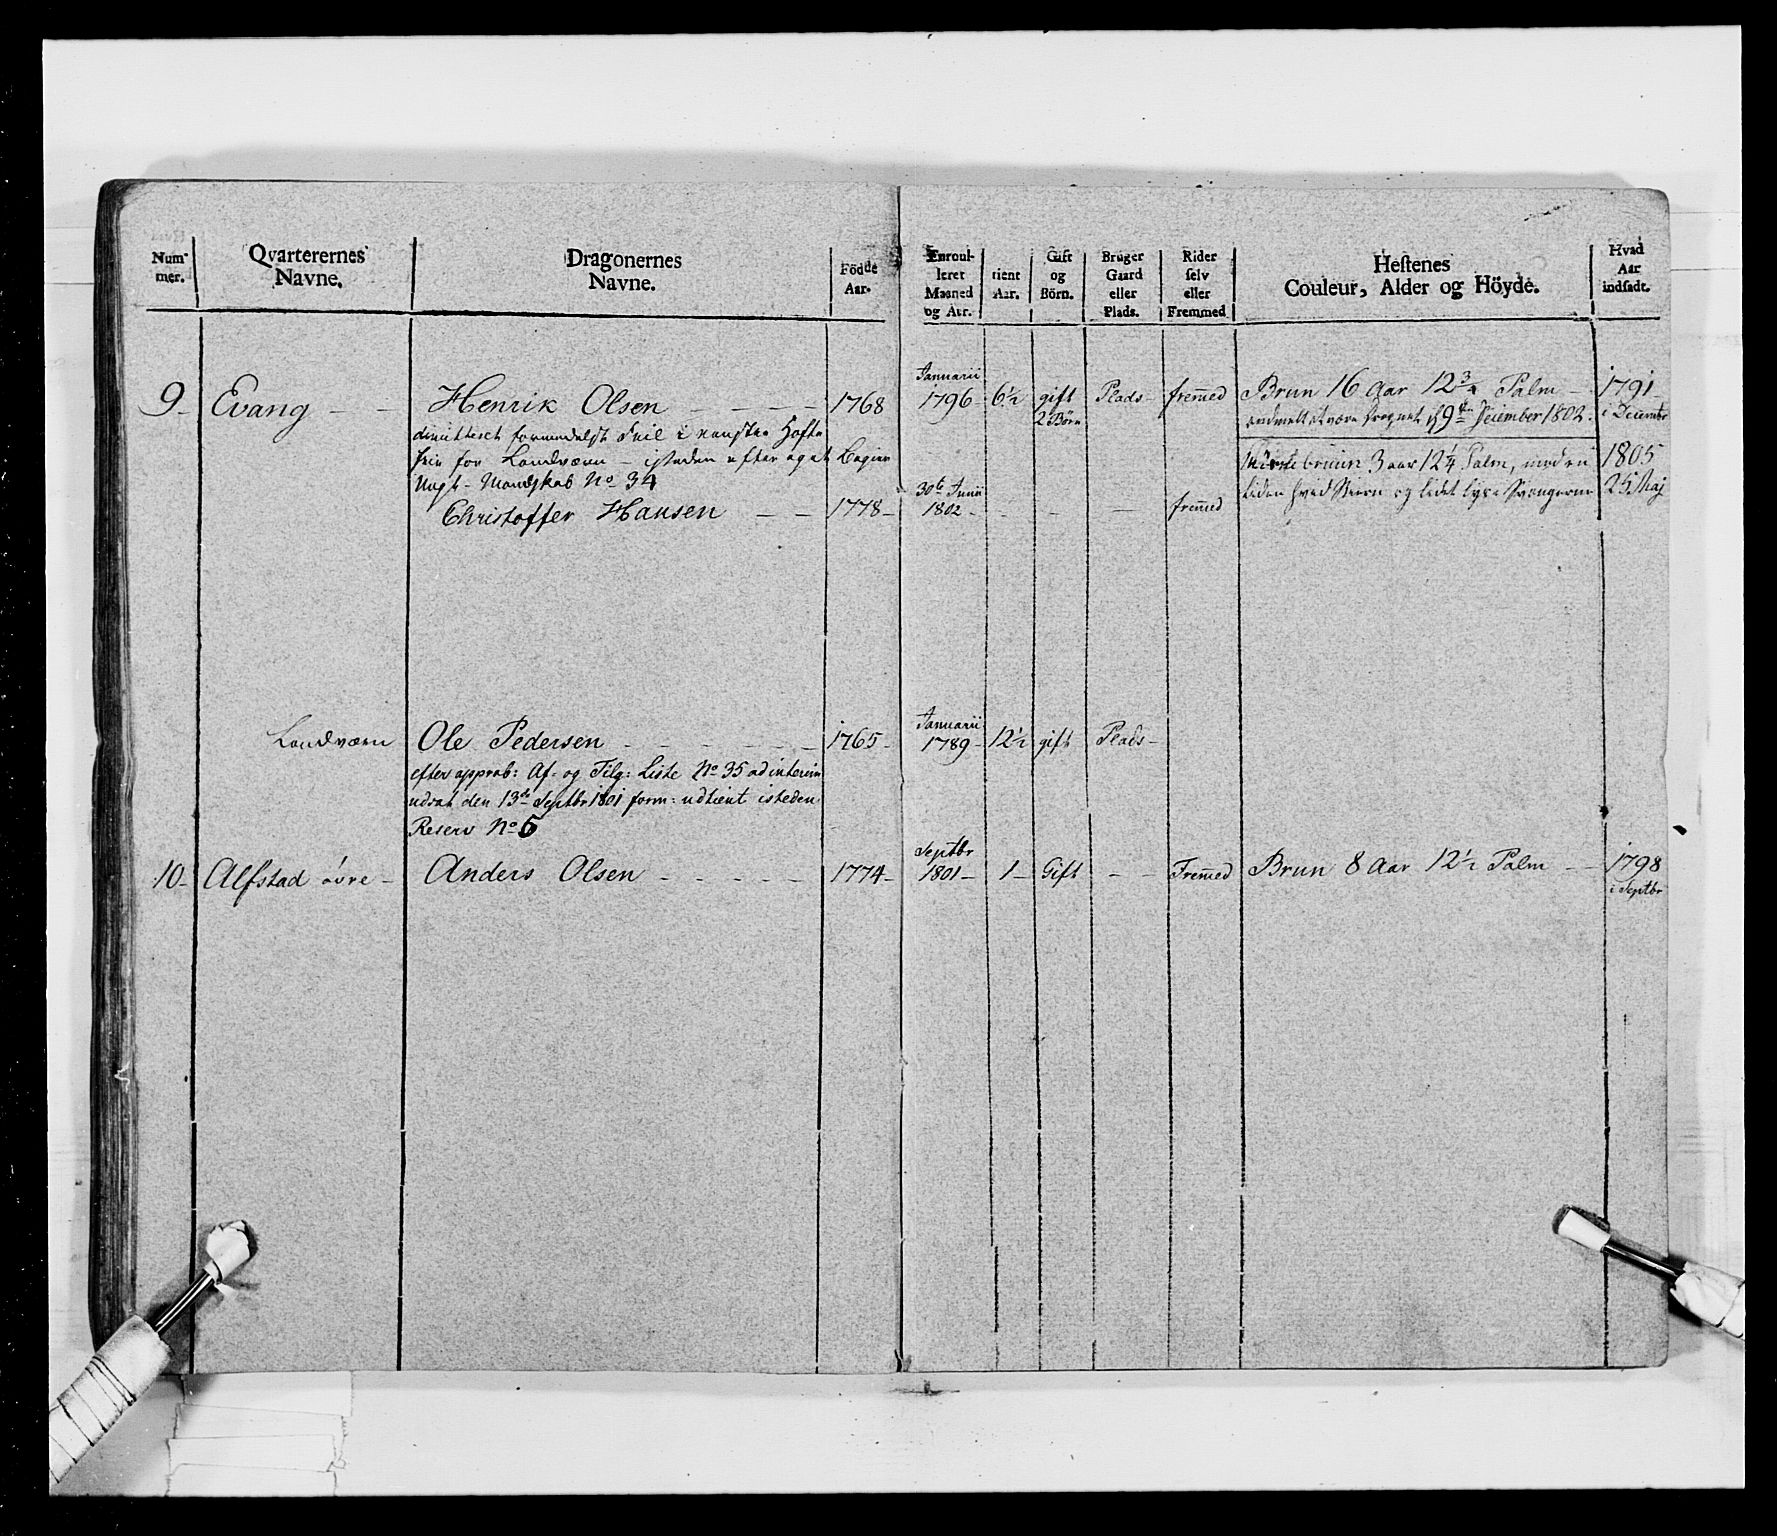 Num-
mer.
Qvarterernes
Navne.
Dragonernes
Navne.
Födde
Aar.
Enroul-
leret
Maaned
og Aar.
tient
Aar.
Gift
og
Börn.
Bruger
Gaard
eller
Plads.
Rider
selv
eller
Fremmed
Hestenes
Couleur, Alder og Höyde.
Hvad
Aar
indsadt.
9 - Evang - - Henrik Olsen - - - - 1768 Januarii 1796 - 6½ gift 2 Börn Plads - fremed Brun 16 Aar 12¾ Palm - 1791 - i Decembr
dimitteret formedelst Feil i venstre Hofte
frie for Landværn - isteden efter
Ungt - Mandskab No 34
anmelt at være 9de December 1802.
bruun 3 aar 12¼ Palm, med en 1805
liden hvid Stiern og lidet lyse 25 Maj
Christoffer Hansen - - 1778 - 30te Junii 1802 - - - - fremed
Landværn Ole Pedersen - - - - - - 1765 - Januarii 1789 - 12½ gift Plads -
efter approb: Af- og Tilg: Liste No 35 ad interim
udsat den 13de Septbr 1801 form: udtient isteden
Reserv No 5
10 - Alfstad övre - Anders Olsen - - - - - 1774 - Septbr 1801 - 1 - Gift - - Fremed Brun 8 Aar 12½ Palm - - 1798
i Septbr